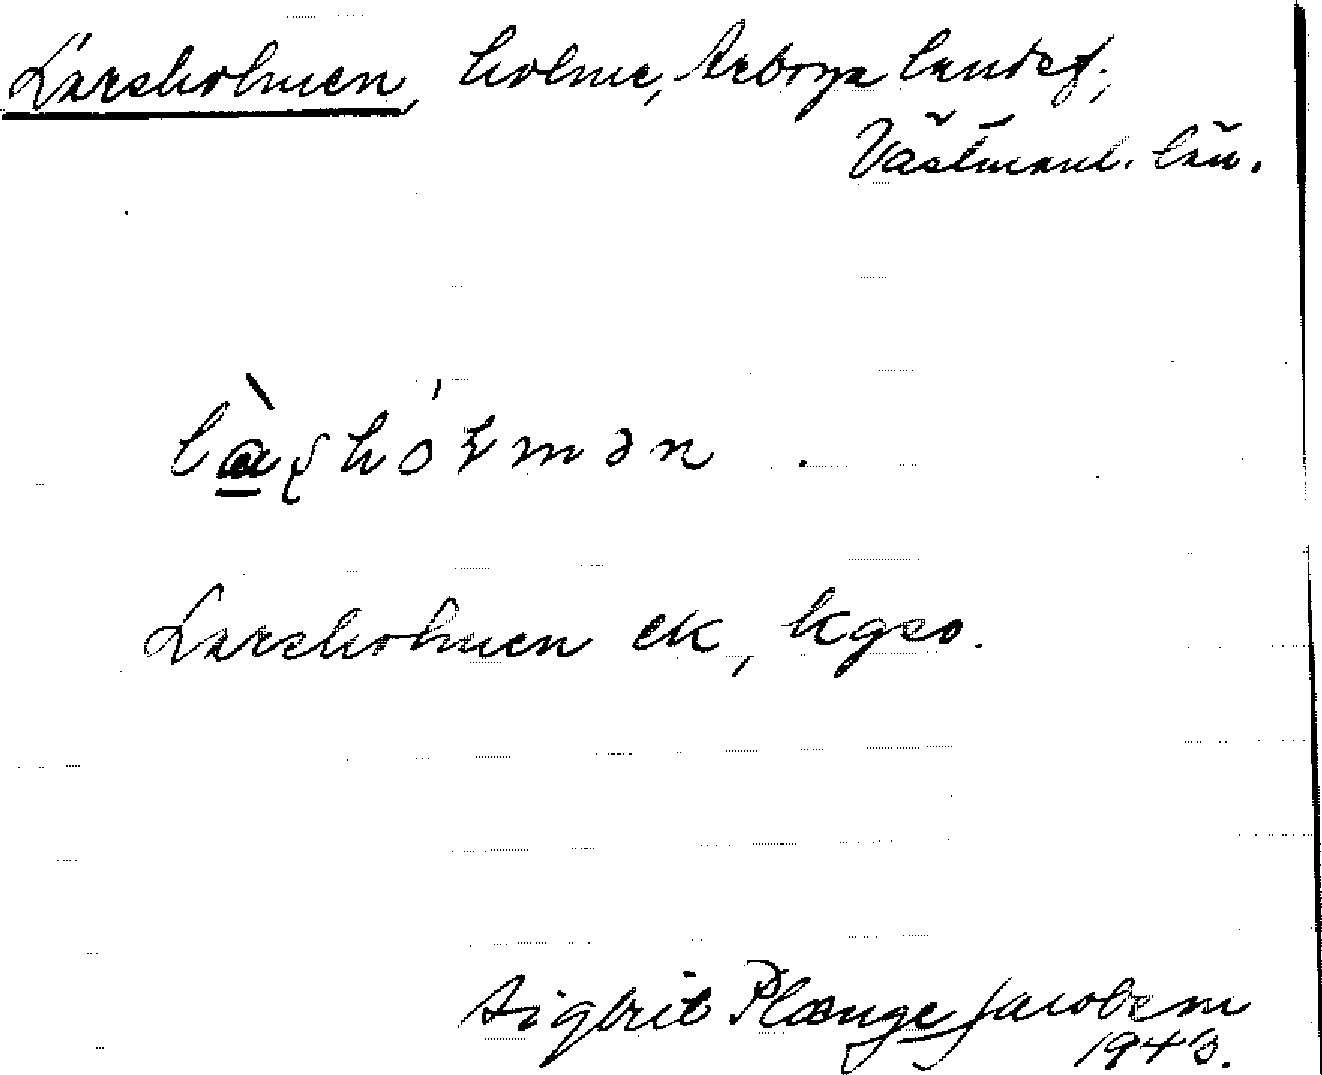 Larsholmen, holme, Arboga landsf.,
Västmanl. län.
là̱ʂhóɫmən.
Larsholmen ek, kgso.
Sigbrit Plænge Jacobson
1940.